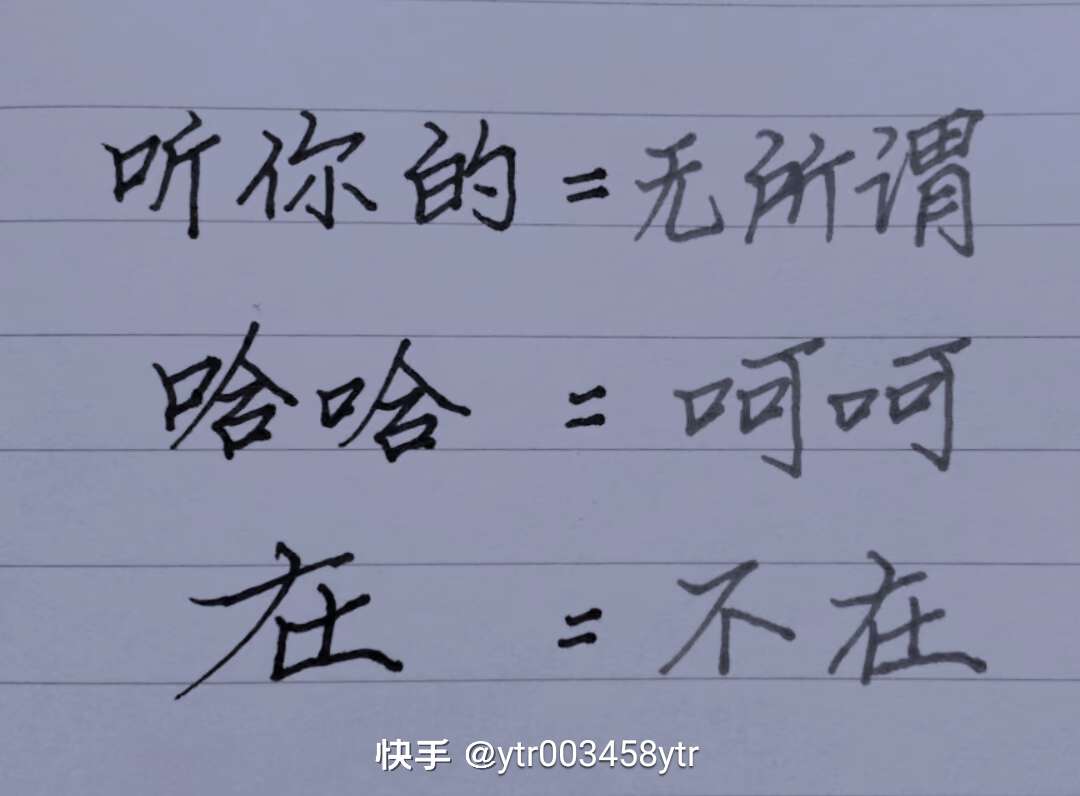 听你的=无所谓
哈哈=呵呵
在=不在
快手 @ytr003458ytr